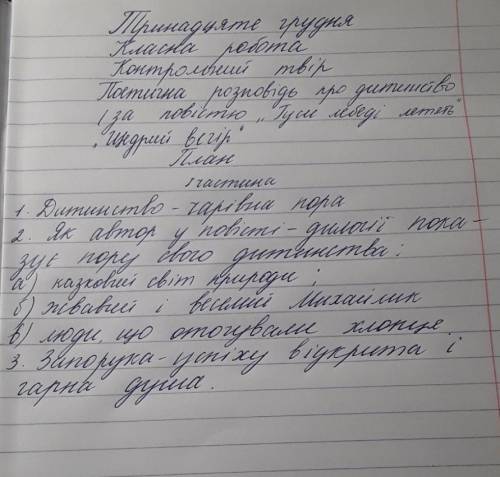 Тринадцяте грудня
Класна робота
Контрольний твір
Поетична розповідь про дитинство
(за повістю „Гуси лебеді летять"
„Щедрий вечір"
План
I частина
1. Дитинство - чарівна пора
2. Як автор у повісті - дилогії пока-
зує пору свого дитинства:
а) казковий світ природи;
б) жвавий і веселий Михайлик
в) люди, що оточували хлопця.
3. Запорука - успіху відкрита і
гарна душа.